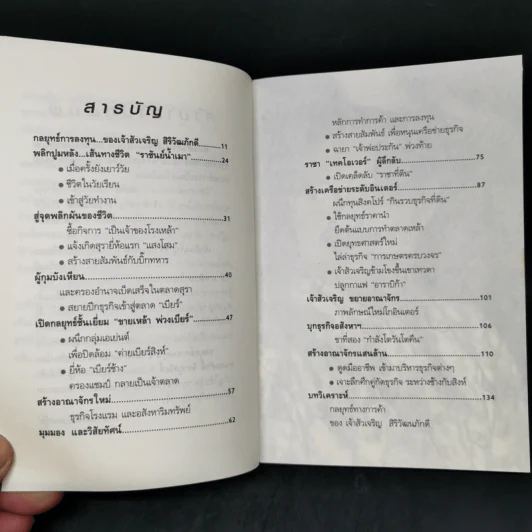 สารบัญ
กลยุทธ์การลงทุน...ของเจ้าสัวเจริญ สิริวัฒนภักดี.......11
พลิกปูมหลัง...เส้นทางชีวิต "ราชันย์น้ำเมา".......24
● เมื่อครั้งยังเยาว์วัย
● ชีวิตในวัยเรียน
● เข้าสู่วัยทำงาน
สู่จุดพลิกผันของชีวิต.......31
ซื้อกิจการ "เป็นเจ้าของโรงเหล้า"
● แจ้งเกิดสุรายี่ห้อแรก "แสงโสม"
● สร้างสายสัมพันธ์กับบิ๊กทหาร
ผู้กุมบังเหียน.......40
และครองอำนาจเบ็ดเสร็จในตลาดสุรา
● สยายปีกธุรกิจเข้าสู่ตลาด "เบียร์"
เปิดกลยุทธ์ชั้นเยี่ยม "ขายเหล้า พ่วงเบียร์".......47
● ผนึกกลุ่มเอเย่นต์
เพื่อปิดล้อม "ค่ายเบียร์สิงห์"
● ยี่ห้อ "เบียร์ช้าง"
ครองแชมป์ กลายเป็นเจ้าตลาด
สร้างอาณาจักรใหม่.......57
ธุรกิจโรงแรม และอสังหาริมทรัพย์
มุมมอง และวิสัยทัศน์.......62
หลักการทำการค้า และการลงทุน
● สร้างสายสัมพันธ์ เพื่อหนุนเครือข่ายธุรกิจ
● ฉายา "เจ้าพ่อประกัน" พ่วงท้าย
ราชา "เทคโอเวอร์" ผู้ลึกลับ.......75
● เปิดเคล็ดลับ "ราชาที่ดิน"
สร้างเครือข่ายระดับอินเตอร์.......87
ผนึกทุนสิงคโปร์ "กินรวบธุรกิจที่ดิน"
● ใช้กลยุทธ์ราคานำ
ยึดต้นแบบการทำตลาดเหล้า
● เปิดยุทธศาสตร์ใหม่
ไล่ล่าธุรกิจ "การเกษตรครบวงจร"
● เจ้าสัวเจริญข้ามโขงขึ้นเขาเทวดา
ปลูกกาแฟ "อาราบิก้า"
เจ้าสัวเจริญ ขยายอาณาจักร.......101
ภาพลักษณ์ใหม่โกอินเตอร์
บุกธุรกิจอสังหาฯ.......106
ขาที่สอง "กำลังโตวันโตคืน"
สร้างอาณาจักรแสนล้าน.......110
● ดูดมืออาชีพ เข้ามาบริหารธุรกิจต่างๆ
● เจาะลึกศึกคู่กัดธุรกิจ ระหว่างช้างกับสิงห์
บทวิเคราะห์.......134
กลยุทธ์ทางการค้า
ของ เจ้าสัวเจริญ สิริวัฒนภักดี